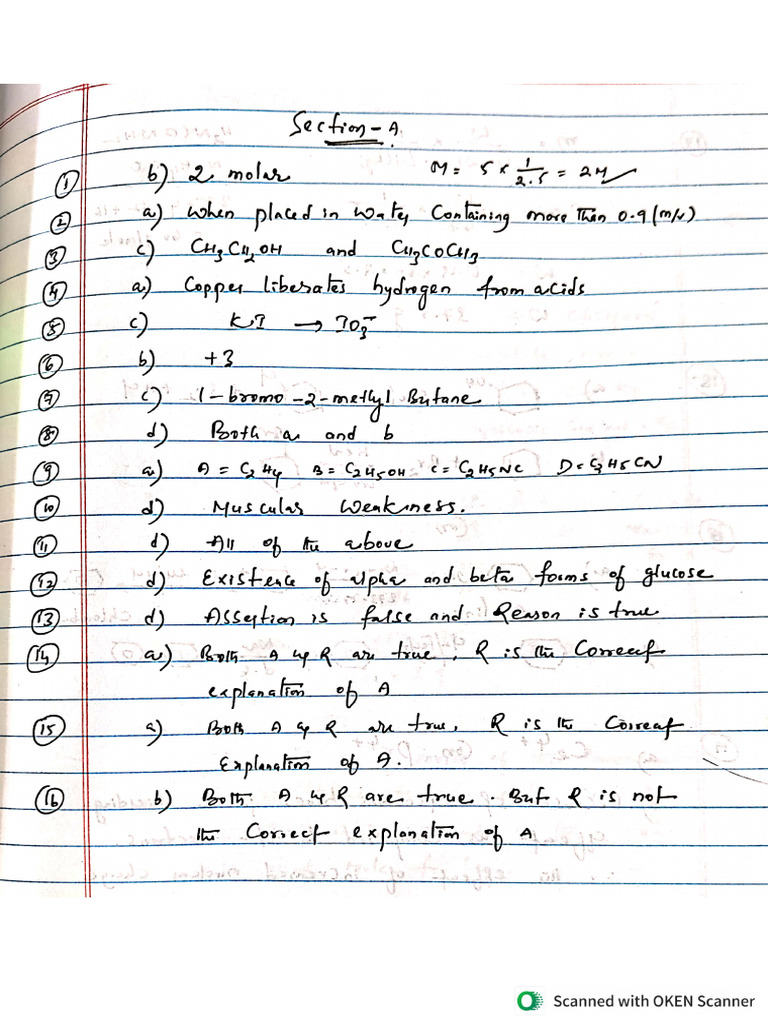 Section - A
① b) 2 molar M = 5 × 1/2.5 = 2M
② a) when placed in water containing more than 0.9 (m/v)
③ c) CH3CH2OH and CH3COCH3
④ a) Copper liberates hydrogen from acids
⑤ c) KI → IO3-
⑥ b) +3
⑦ c) 1-bromo-2-methyl Butane
⑧ d) Both a and b
⑨ a) A = C2H4 B = C2H5OH C = C2H5NC D = C2H5CN
⑩ d) Muscular Weakness.
⑪ d) All of the above
⑫ d) Existence of alpha and beta forms of glucose
⑬ d) Assertion is false and Reason is true
⑭ a) Both A & R are true, R is the Correct
explanation of A
⑮ a) Both A & R are true, R is the Correct
Explanation of A.
⑯ b) Both A & R are true. But R is not
the Correct explanation of A
Scanned with OKEN Scanner